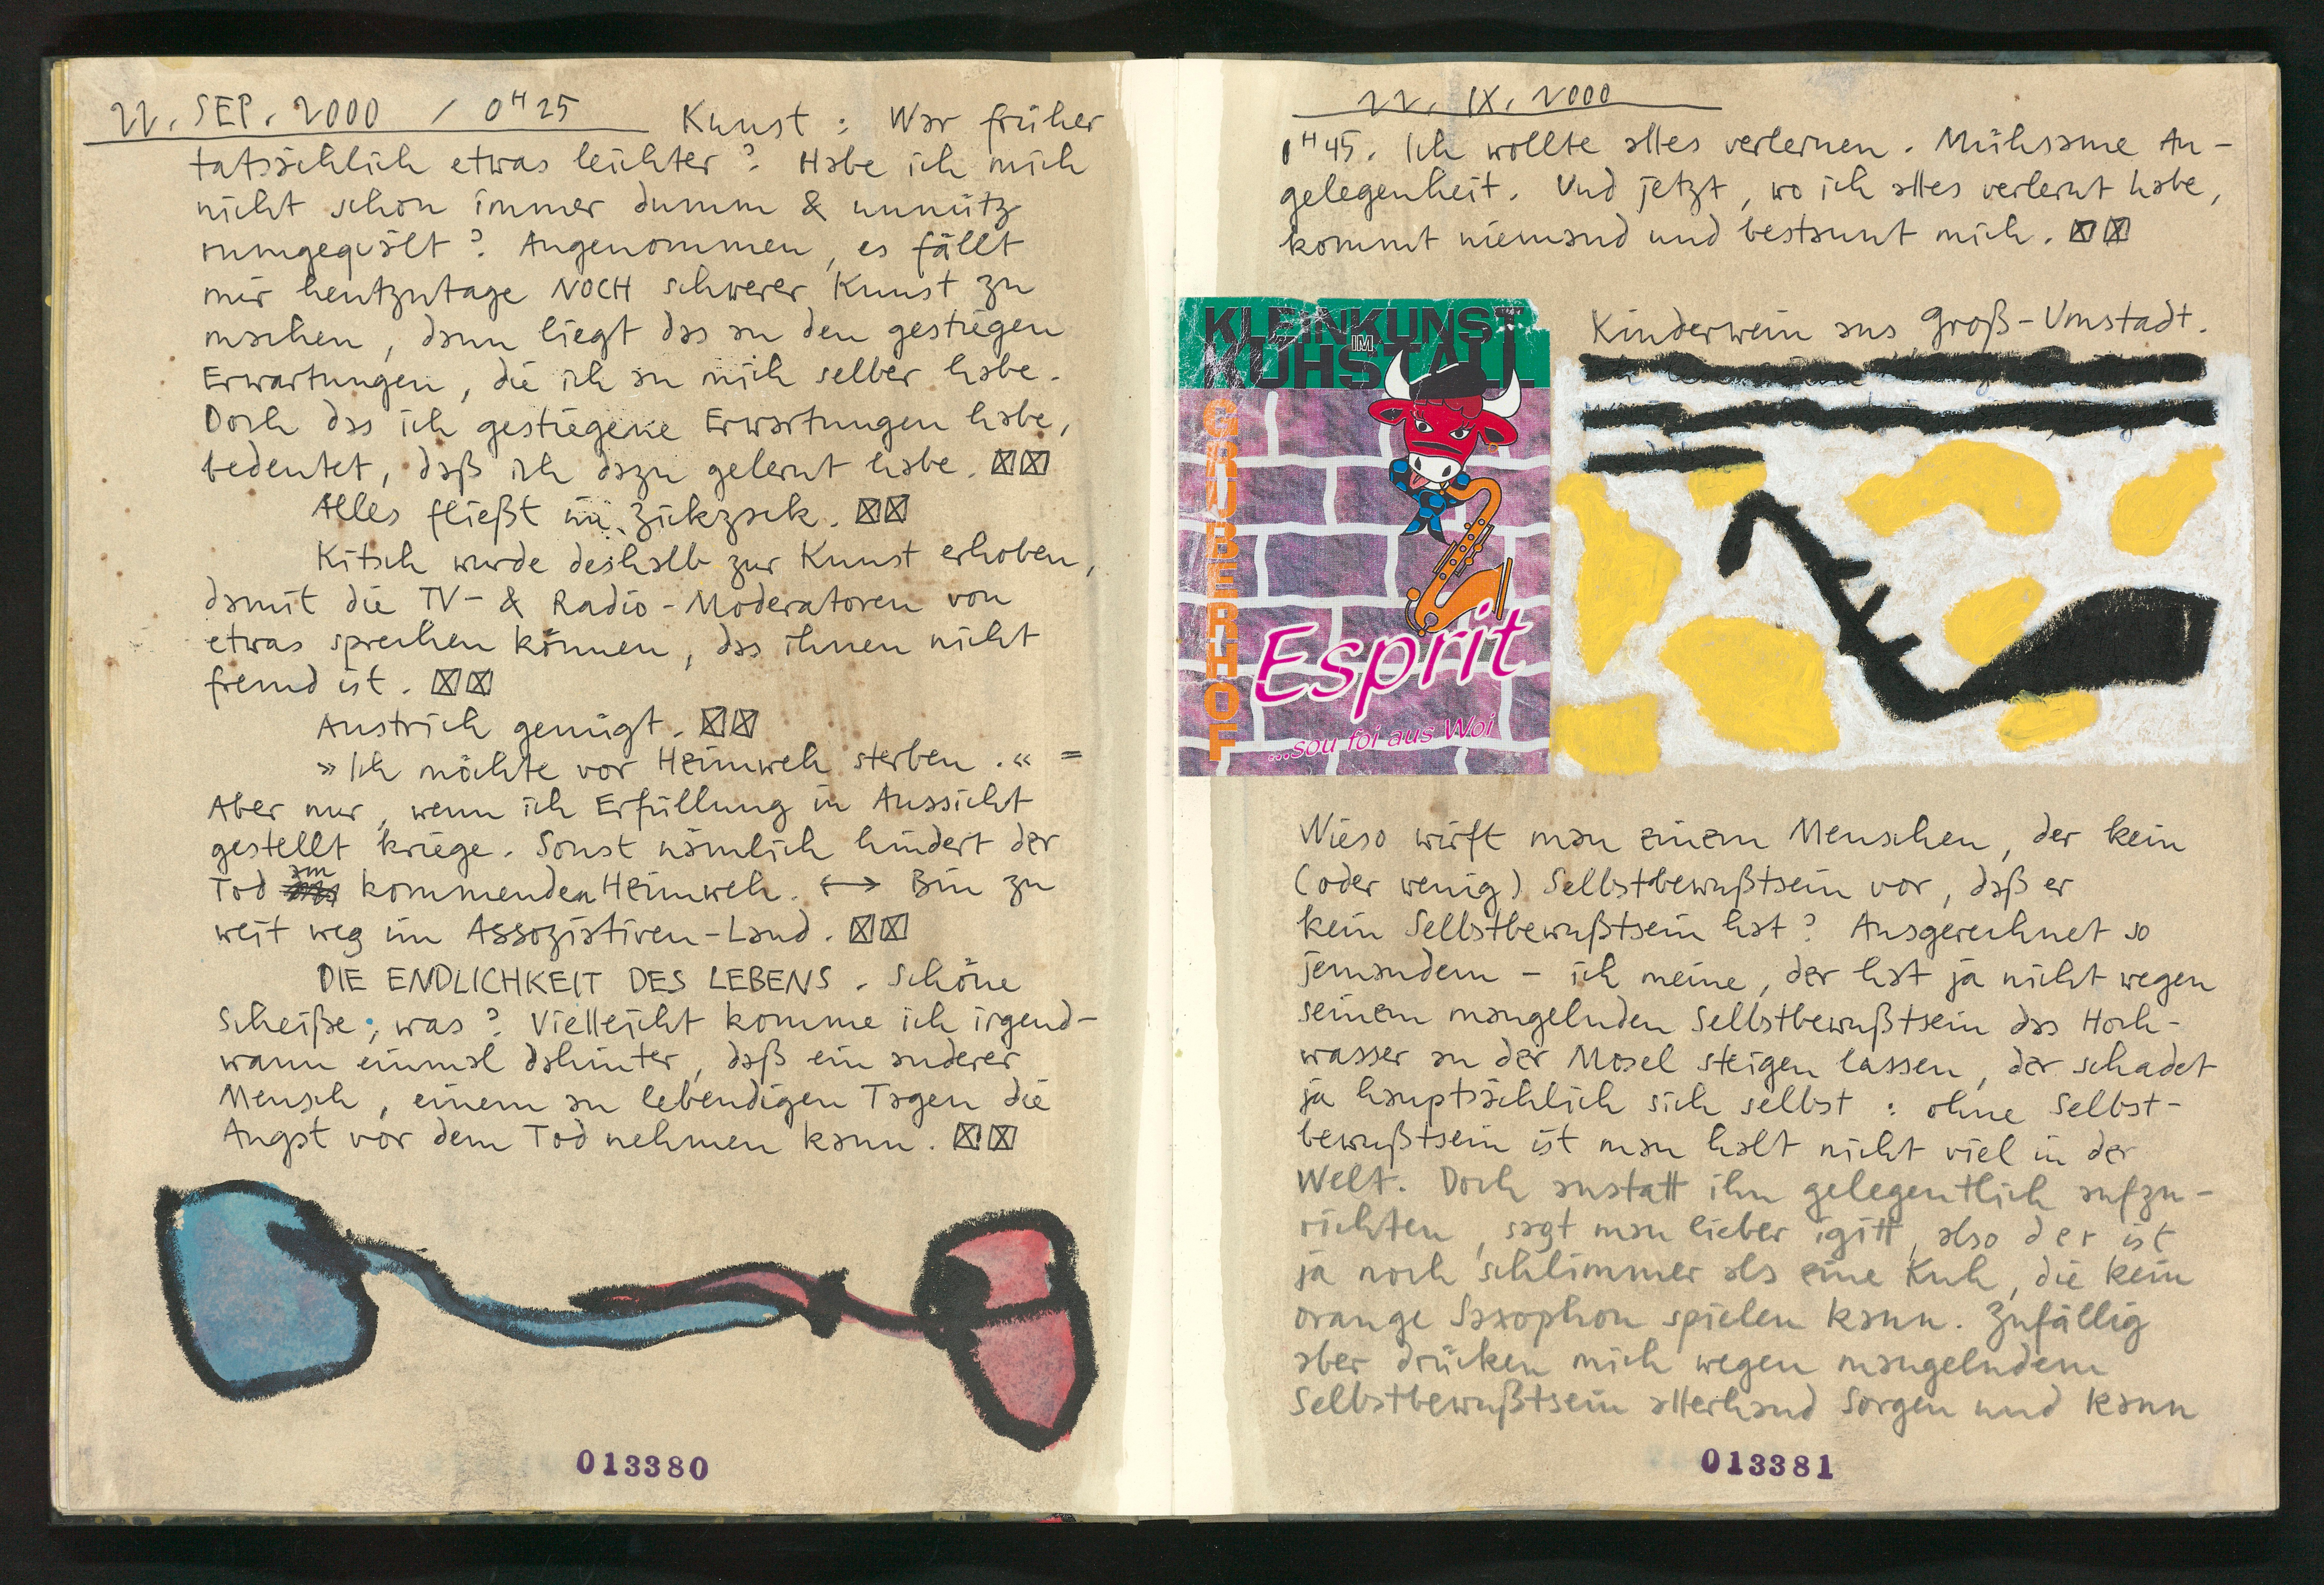 22. SEP. 2000 / 0 H 25 Kunst : War früher
tatsächlich etwas leichter ? Habe ich mich
nicht schon immer dumm & unnütz
rumgequält ? Angenommen, es fällt
mir heutzutage NOCH schwerer Kunst zu
machen, dann liegt das an den gestiegen
Erwartungen, die ich an mich selber habe.
Doch das ich gestiegene Erwartungen habe,
bedeutet, daß ich dazu gelernt habe. ☒☒
Alles fließt im Zickzack. ☒☒
Kitsch wurde deshalb zur Kunst erhoben,
damit die TV- & Radio-Moderatoren von
etwas sprechen können, das ihnen nicht
fremd ist. ☒☒
Anstrich genügt. ☒☒
»Ich möchte vor Heimweh sterben.« =
Aber nur, wenn ich Erfüllung in Aussicht
gestellt kriege. Sonst nämlich hindert der
Tod am kommenden Heimweh. ↔ Bin zu
weit weg im Assoziativen-Land. ☒☒
DIE ENDLICHKEIT DES LEBENS. Schöne
Scheiße, was ? Vielleicht komme ich irgend-
wann einmal dahinter, daß ein anderer
Mensch, einem an lebendigen Tagen die
Angst vor dem Tod nehmen kann. ☒☒
013380
22. IX. 2000
0 H 45. Ich wollte alles verlernen. Mühsame An-
gelegenheit. Und jetzt, wo ich alles verlernt habe,
kommt niemand und bestaunt mich. ☒☒
Kinderwein aus Groß-Umstadt.
KLEINKUNST
IM
KUHSTALL
GRUBERHOF
Esprit
...sou foi aus Woi
Wieso wirft man einem Menschen, der kein
(oder wenig) Selbstbewußtsein vor, daß er
kein Selbstbewußtsein hat ? Ausgerechnet so
jemandem – ich meine, der hat ja nicht wegen
seinem mangelnden Selbstbewußtsein das Hoch-
wasser an der Mosel steigen lassen, der schadet
ja hauptsächlich sich selbst : ohne Selbst-
bewußtsein ist man halt nicht viel in der
Welt. Doch anstatt ihn gelegentlich aufzu-
richten, sagt man lieber igitt, also der ist
ja noch schlimmer als eine Kuh, die kein
orange Saxophon spielen kann. Zufällig
aber drücken mich wegen mangelndem
Selbstbewußtsein allerhand Sorgen und kann
013381